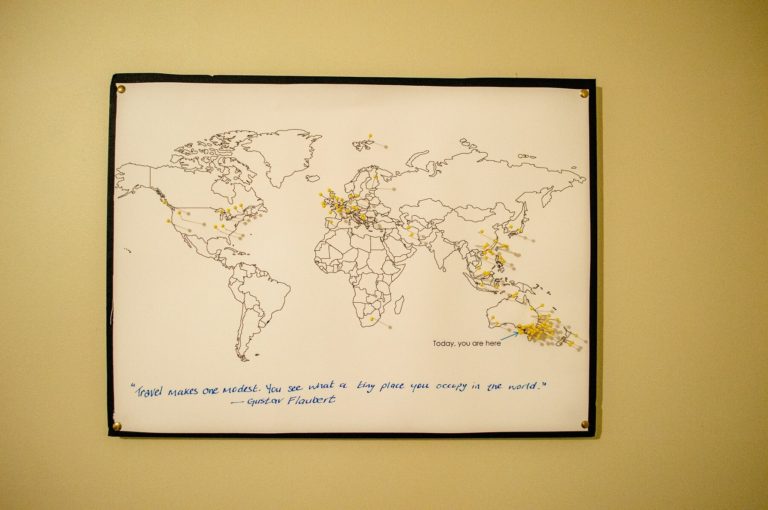 Today, you are here
"Travel makes one modest. You see what a tiny place you occupy in the world."
— Gustav Flaubert